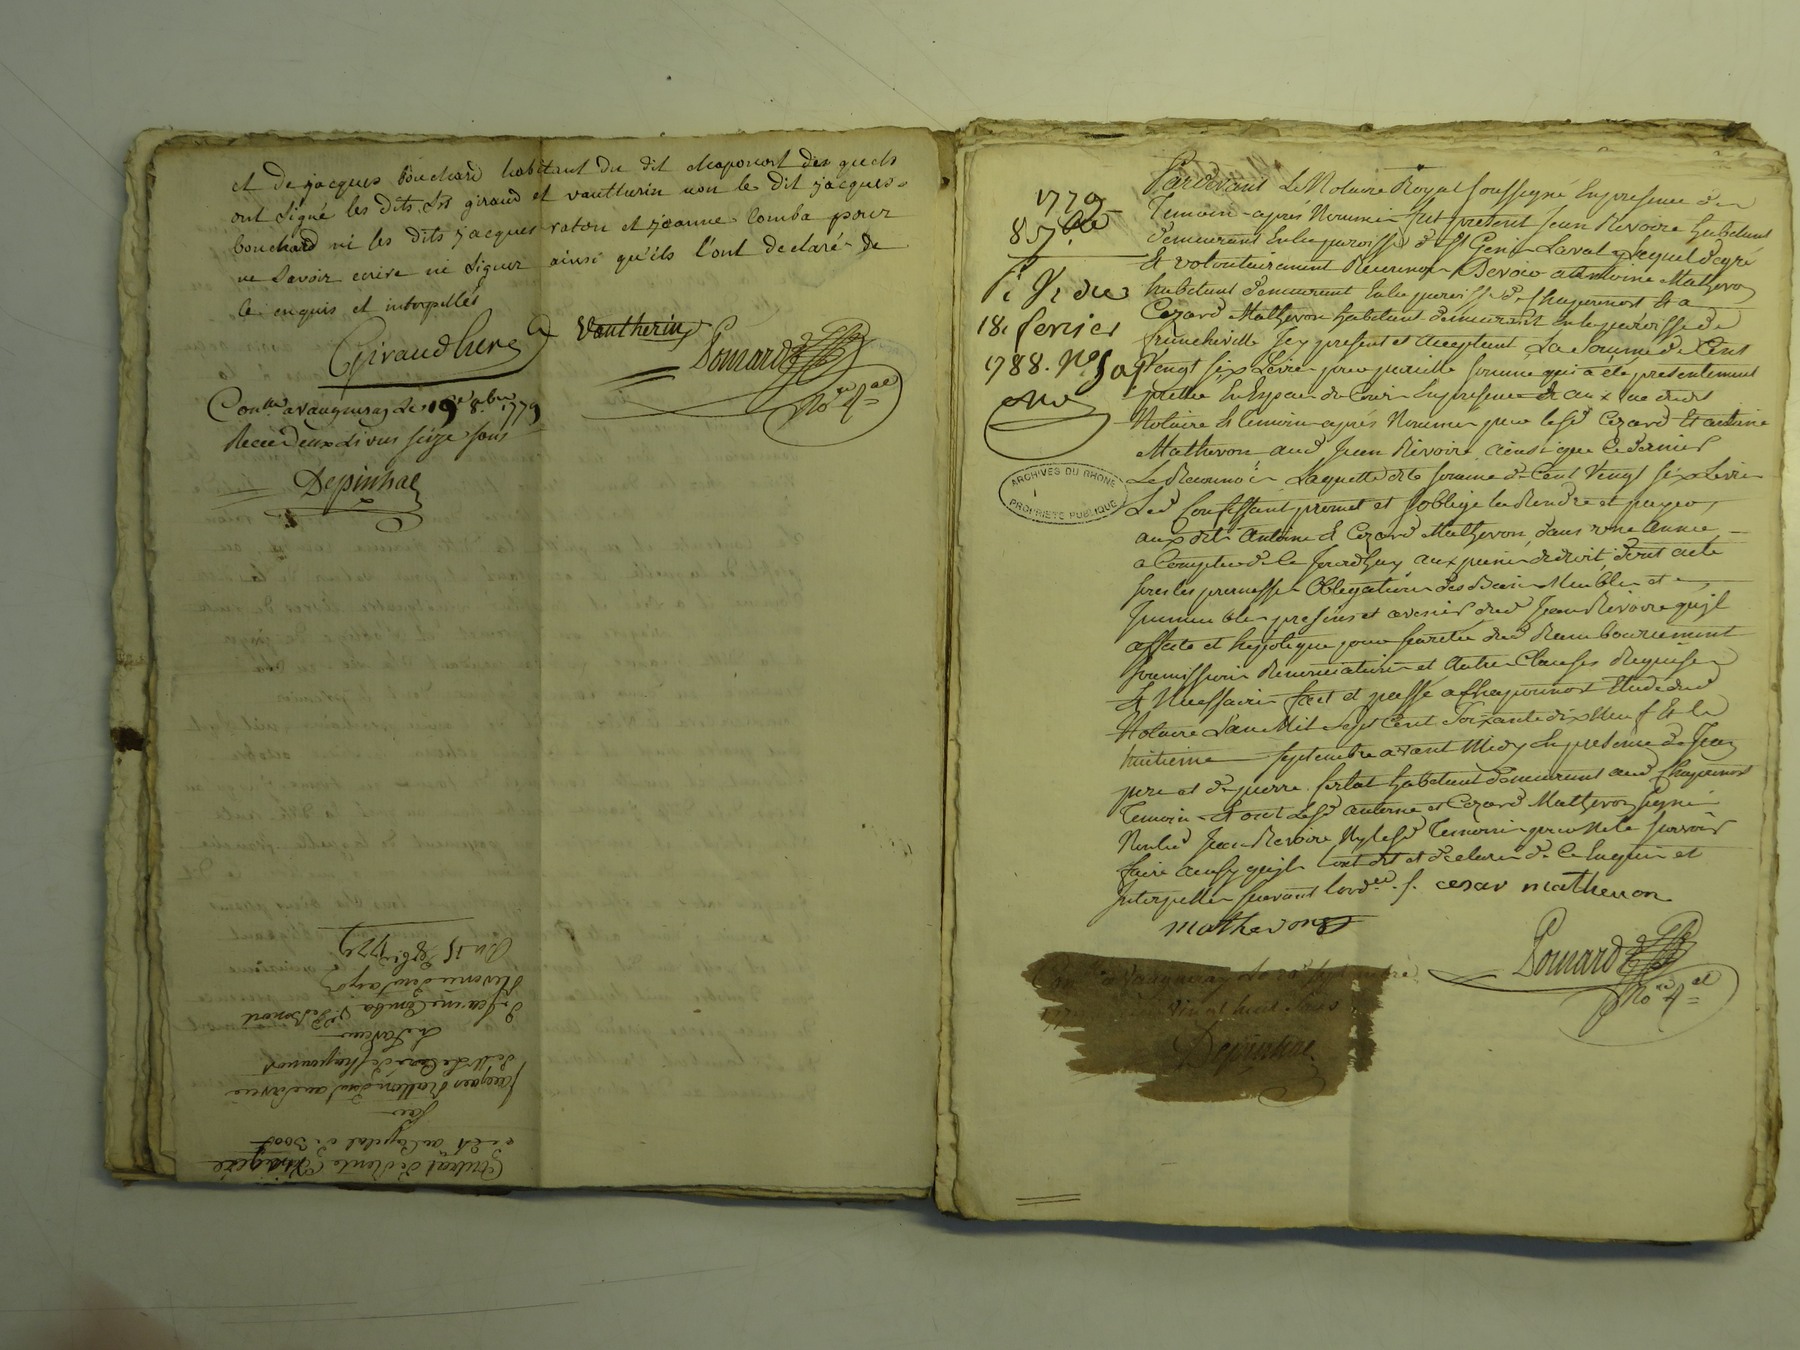 et de jacques bouchard habitant du dit chaponost des quels
ont signé les dits srs giraud et vautherin non le dit jacques
bouchard ni les dits jacques raton et jeanne Comba pour
ne savoir ecrire ni signer ainsi qu'ils l'ont declaré de
ce enquis et interpellés
Giraud Cure
Vautherin
Ponard
No.re R.al
Con.lle a vaugneray le 19e 8.bre 1779
Recu deux Livres seize sous
Depinhac
Contrat de Rente
au Capital de 300#
par
jacques Ratton
de Mr Le Curé de Chaponost
et jeanne Comba
Du 15 8bre 1779
1779
8 7bre
18. fevrier
1788. No
ARCHIVES DU RHONE
PROPRIETE PUBLIQUE
Pardevant Le Notaire Royal soussigné En presence des
Temoin après Nommés fut present jean Revoire habitant
demeurant En la paroisse de St Genis Laval Lequel de gré
Et volontairement Reconnoit Devoir a antoine Mathevon
habitant demeurant En la paroisse de Chaponost Et a
Cezard Mathevon habitant demeurant En la paroisse de
francheville Icy present et acceptant La somme de Cent
Vingt six Livres pour pareille somme qui a été presentement
prettée En Espece de Cours En presence Et au vue dudt
Notaire Et temoin après Nommés par lesd Cezard Et antoine
Mathevon aud Jean Revoire ainsi que Ce dernier
Le Reconnoit Laquelle dite somme de Cent Vingt six Livres
Led Confessant promet et s'oblige la Rendre et payer
aux dits Antoine Et Cezard Mathevon dans une année
a Compter de Ce Jourd'huy aux peines de droit
sous les promesses Obligation des Biens Meubles et
Immeubles presens et avenir dud Jean Revoire qu'il
affecte et hypoteque pour sureté dud Remboursement
soumissions Renonciation et Autre Clauses Requises
Et Necessaires fait et passé a Chaponnost Etude dud
Notaire L'an Mil sept Cent soixante dix Neuf Et le
huitieme septembre avant Midy En presence de Jean
pere et de pierre habitant demeurant aud Chaponost
Temoin Et ont Lesd antoine et Cezard Mathevon signé
Non led Jean Revoire Ny lesd Temoin pour Ne le sçavoir
faire ainsy qu'ils ont dit et declaré de Ce Enquis et
Interpellés suivant l'ord.ce /. cesar mathevon
mathevon
Ponard
No.re R.al
a Vaugneray le septembre
vingt huit sous
Depinhac